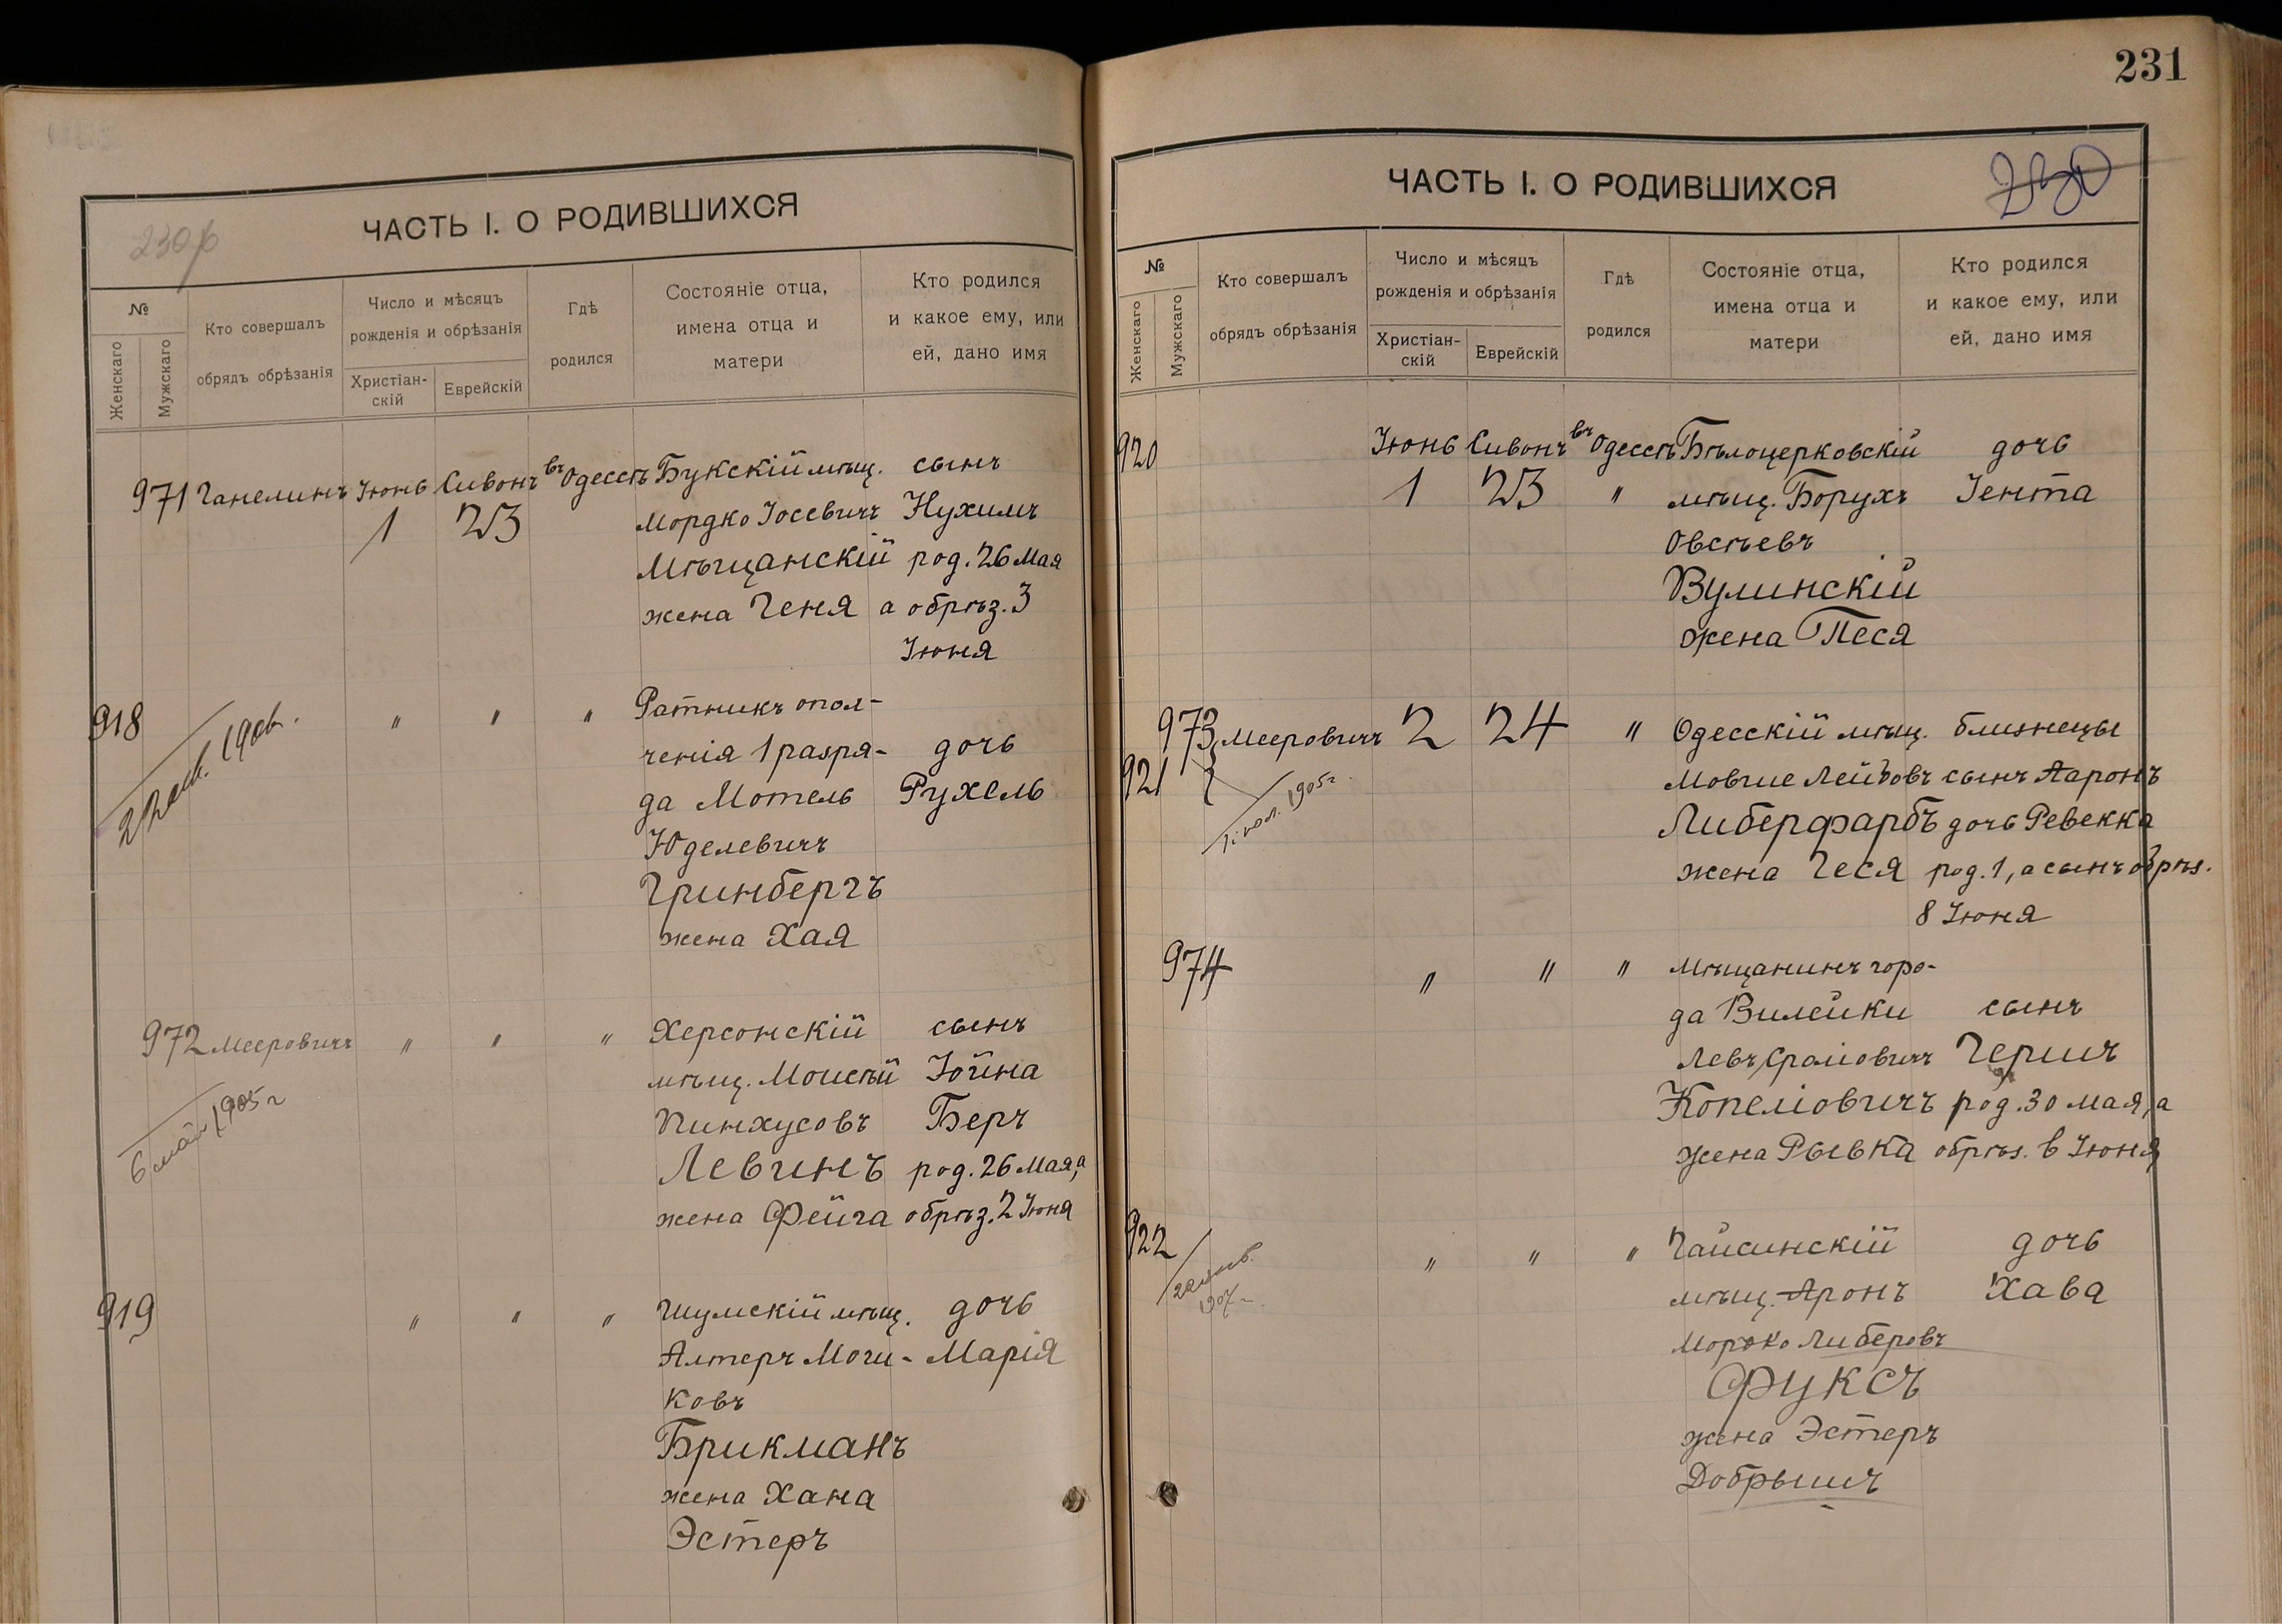 231
230
ЧАСТЬ I. О РОДИВШИХСЯ
№
Женскаго
Мужскаго
Кто совершалъ
обрядъ обрѣзанія
Число и мѣсяцъ
рожденія и обрѣзанія
Христіан-
скій
Еврейскій
Гдѣ
родился
Состояніе отца,
имена отца и
матери
Кто родился
и какое ему, или
ей, дано имя
971 Ганелинъ Іюнь Сивонъ въ Одессѣ Букскій мѣщ. сынъ
1 23 Мордко Іосевичъ Нухимъ
Мѣщанскій род. 26 Мая
жена Геня а обрѣз. 3
Іюня
918 " " " Ратникъ опол-
ченія 1 разря- дочь
да Мотель Рухель
Юделевичъ
Гринбергъ
жена Хая
972 Мееровичъ " " " Херсонскій сынъ
мѣщ. Моисѣй Іойна
Пинхусовъ Беръ
Левинъ род. 26 Мая, а
жена Фейга обрѣз. 2 Іюня
6 май 1905 г
919 " " " Шумскій мѣщ. дочь
Алтеръ Моги- Марія
ковъ
Брикманъ
жена Хана
Эстеръ
ЧАСТЬ I. О РОДИВШИХСЯ
230
№
Женскаго
Мужскаго
Кто совершалъ
обрядъ обрѣзанія
Число и мѣсяцъ
рожденія и обрѣзанія
Христіан-
скій
Еврейскій
Гдѣ
родился
Состояніе отца,
имена отца и
матери
Кто родился
и какое ему, или
ей, дано имя
920 Іюнь Сивонъ въ Одессѣ Бѣлоцерковскій дочь
1 23 " мѣщ. Борухъ Іента
Овсѣевъ
Вулинскій
жена Песя
973 Мееровичъ 2 24 " Одесскій мѣщ. близнецы
921 Мовше Лейбовъ сынъ Ааронъ
Либерфарбъ дочь Ревекка
жена Геся род. 1, а сынъ обрѣз.
8 Іюня
1905 г.
974 " " " Мѣщанинъ горо-
да Вилейки сынъ
Левъ Сроліовичъ Гершъ
Копеліовичъ род. 30 мая, а
жена Рывка обрѣз. 6 Іюня
922 " " " Гайсинскій дочь
мѣщ. Аронъ Хава
Мордко Либеровъ
Фуксъ
жена Эстеръ
Добрышъ
1907 г.